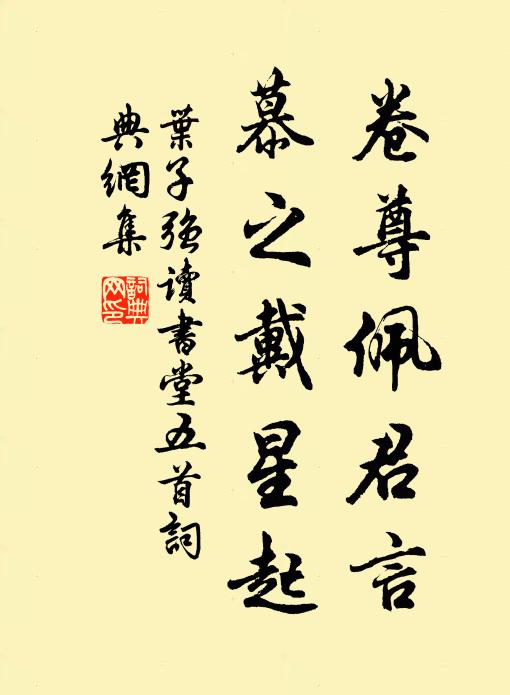 卷尊佩君言
慕之戴星起
葉子强讀書堂五首詞
典網集
詞典
网印